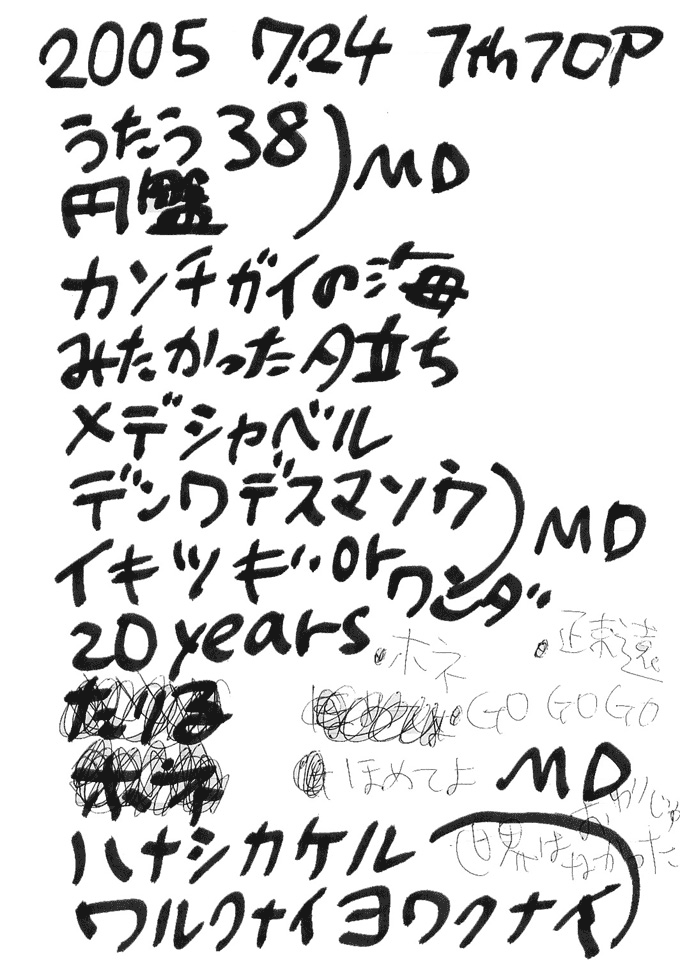 2005 7.24 7thフロア
うたう38
円盤
MD
カンチガイの海
みたかった夕立ち
メデシャベル
デンワデスマソウ
イキツギ・・or ワンダ・・
MD
20 years
・ホネ
・正束遠
たりる
・GO GO GO
ホネ
ほめてよ
MD
ハナシカケル
世界は
おわりじゃ
なかった
ワルクナイヨワクナイ